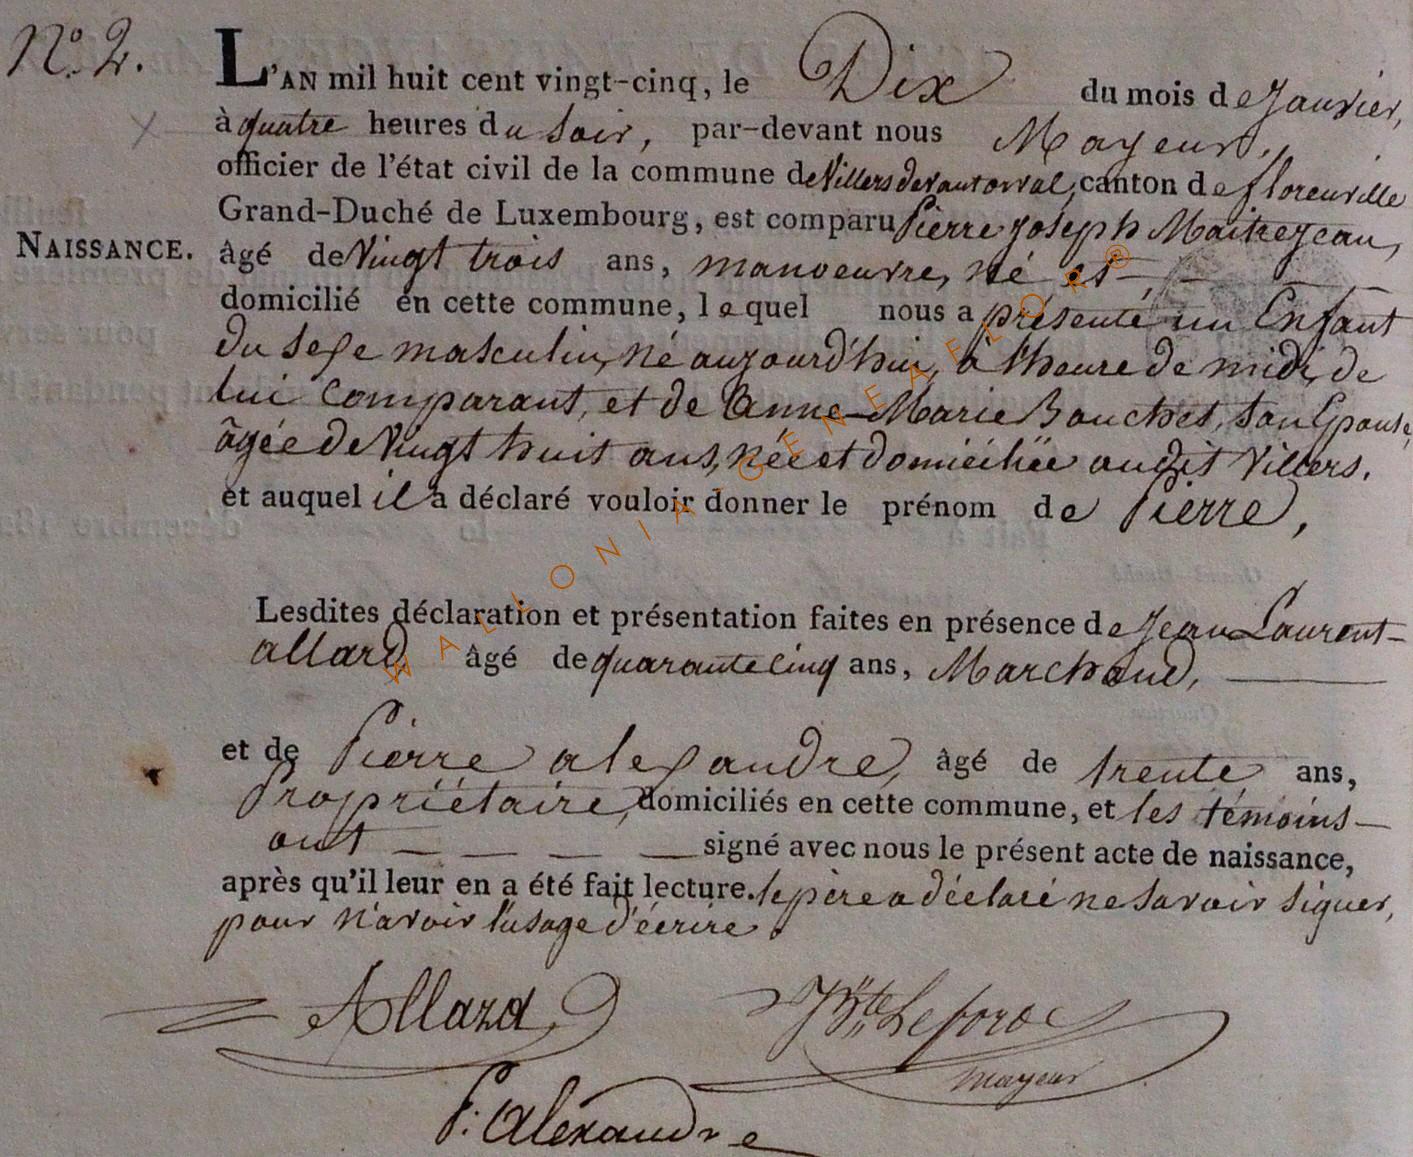 N.o 2.
L'AN mil huit cent vingt-cinq, le Dix du mois de Janvier,
à quatre heures du soir, par-devant nous Mayeur,
officier de l'état civil de la commune de Villers devant orval, canton de florenville
Grand-Duché de Luxembourg, est comparu Pierre Joseph Maitrejean,
NAISSANCE. âgé de Vingt trois ans, manoeuvre, né et —, —
domicilié en cette commune, lequel nous a présenté un Enfant
du sexe masculin, né aujourd'hui, à l'heure de midi, de
lui Comparant, et de Anne-Marie Bouchet, son Epouse,
âgée de Vingt huit ans, née et domiciliée audit Villers.
et auquel il a déclaré vouloir donner le prénom de Pierre,
Lesdites déclaration et présentation faites en présence de Jean Laurent-
allard âgé de quarante cinq ans, Marchand, —
et de Pierre alexandre, âgé de trente ans,
Propriétaire, domiciliés en cette commune, et les témoins —
ont — — — — signé avec nous le présent acte de naissance,
après qu'il leur en a été fait lecture. le père a déclaré ne savoir signer,
pour n'avoir l'usage d'écrire.
Allard
JBte Leforo
mayeur
P. Alexandre
WALLONIA GENEAFLOR ®